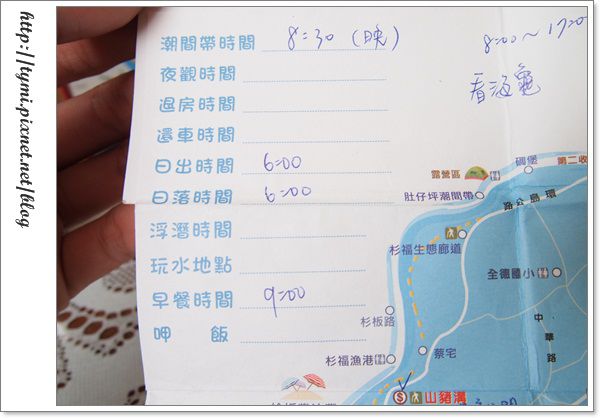 http://tymi.pixnet.net/blog
潮間帶時間 8:30 (晚)
8:00~17:00
看海龜
夜觀時間
退房時間
還車時間
日出時間 6:00
日落時間 6:00
浮潛時間
玩水地點
早餐時間 9:00
呷 飯
露營區
碉堡
第二收
肚仔坪潮間帶
環島公路
杉福生態廊道
全德國小
中華路
杉板路
杉福漁港
蔡宅
山豬溝